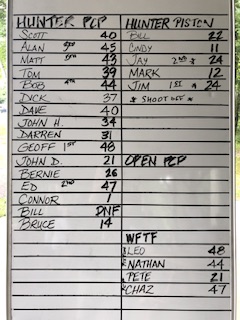 HUNTER PCP
SCOTT 40
ALAN 3RD 45
MATT 5TH 43
TOM 39
BOB 4TH 44
DICK 37
DAVE 40
JOHN H. 34
DARREN 31
GEOFF 1ST 48
JOHN D. 21
BERNIE 26
ED 2ND 47
CONNOR 1
BILL DNF
BRUCE 14
HUNTER PISTON
BILL 22
CINDY 11
JAY 2ND * 24
MARK 12
JIM 1ST * 24
* SHOOT OFF *
OPEN PCP
WFTF
LEO 48
NATHAN 44
PETE 21
CHAZ 47